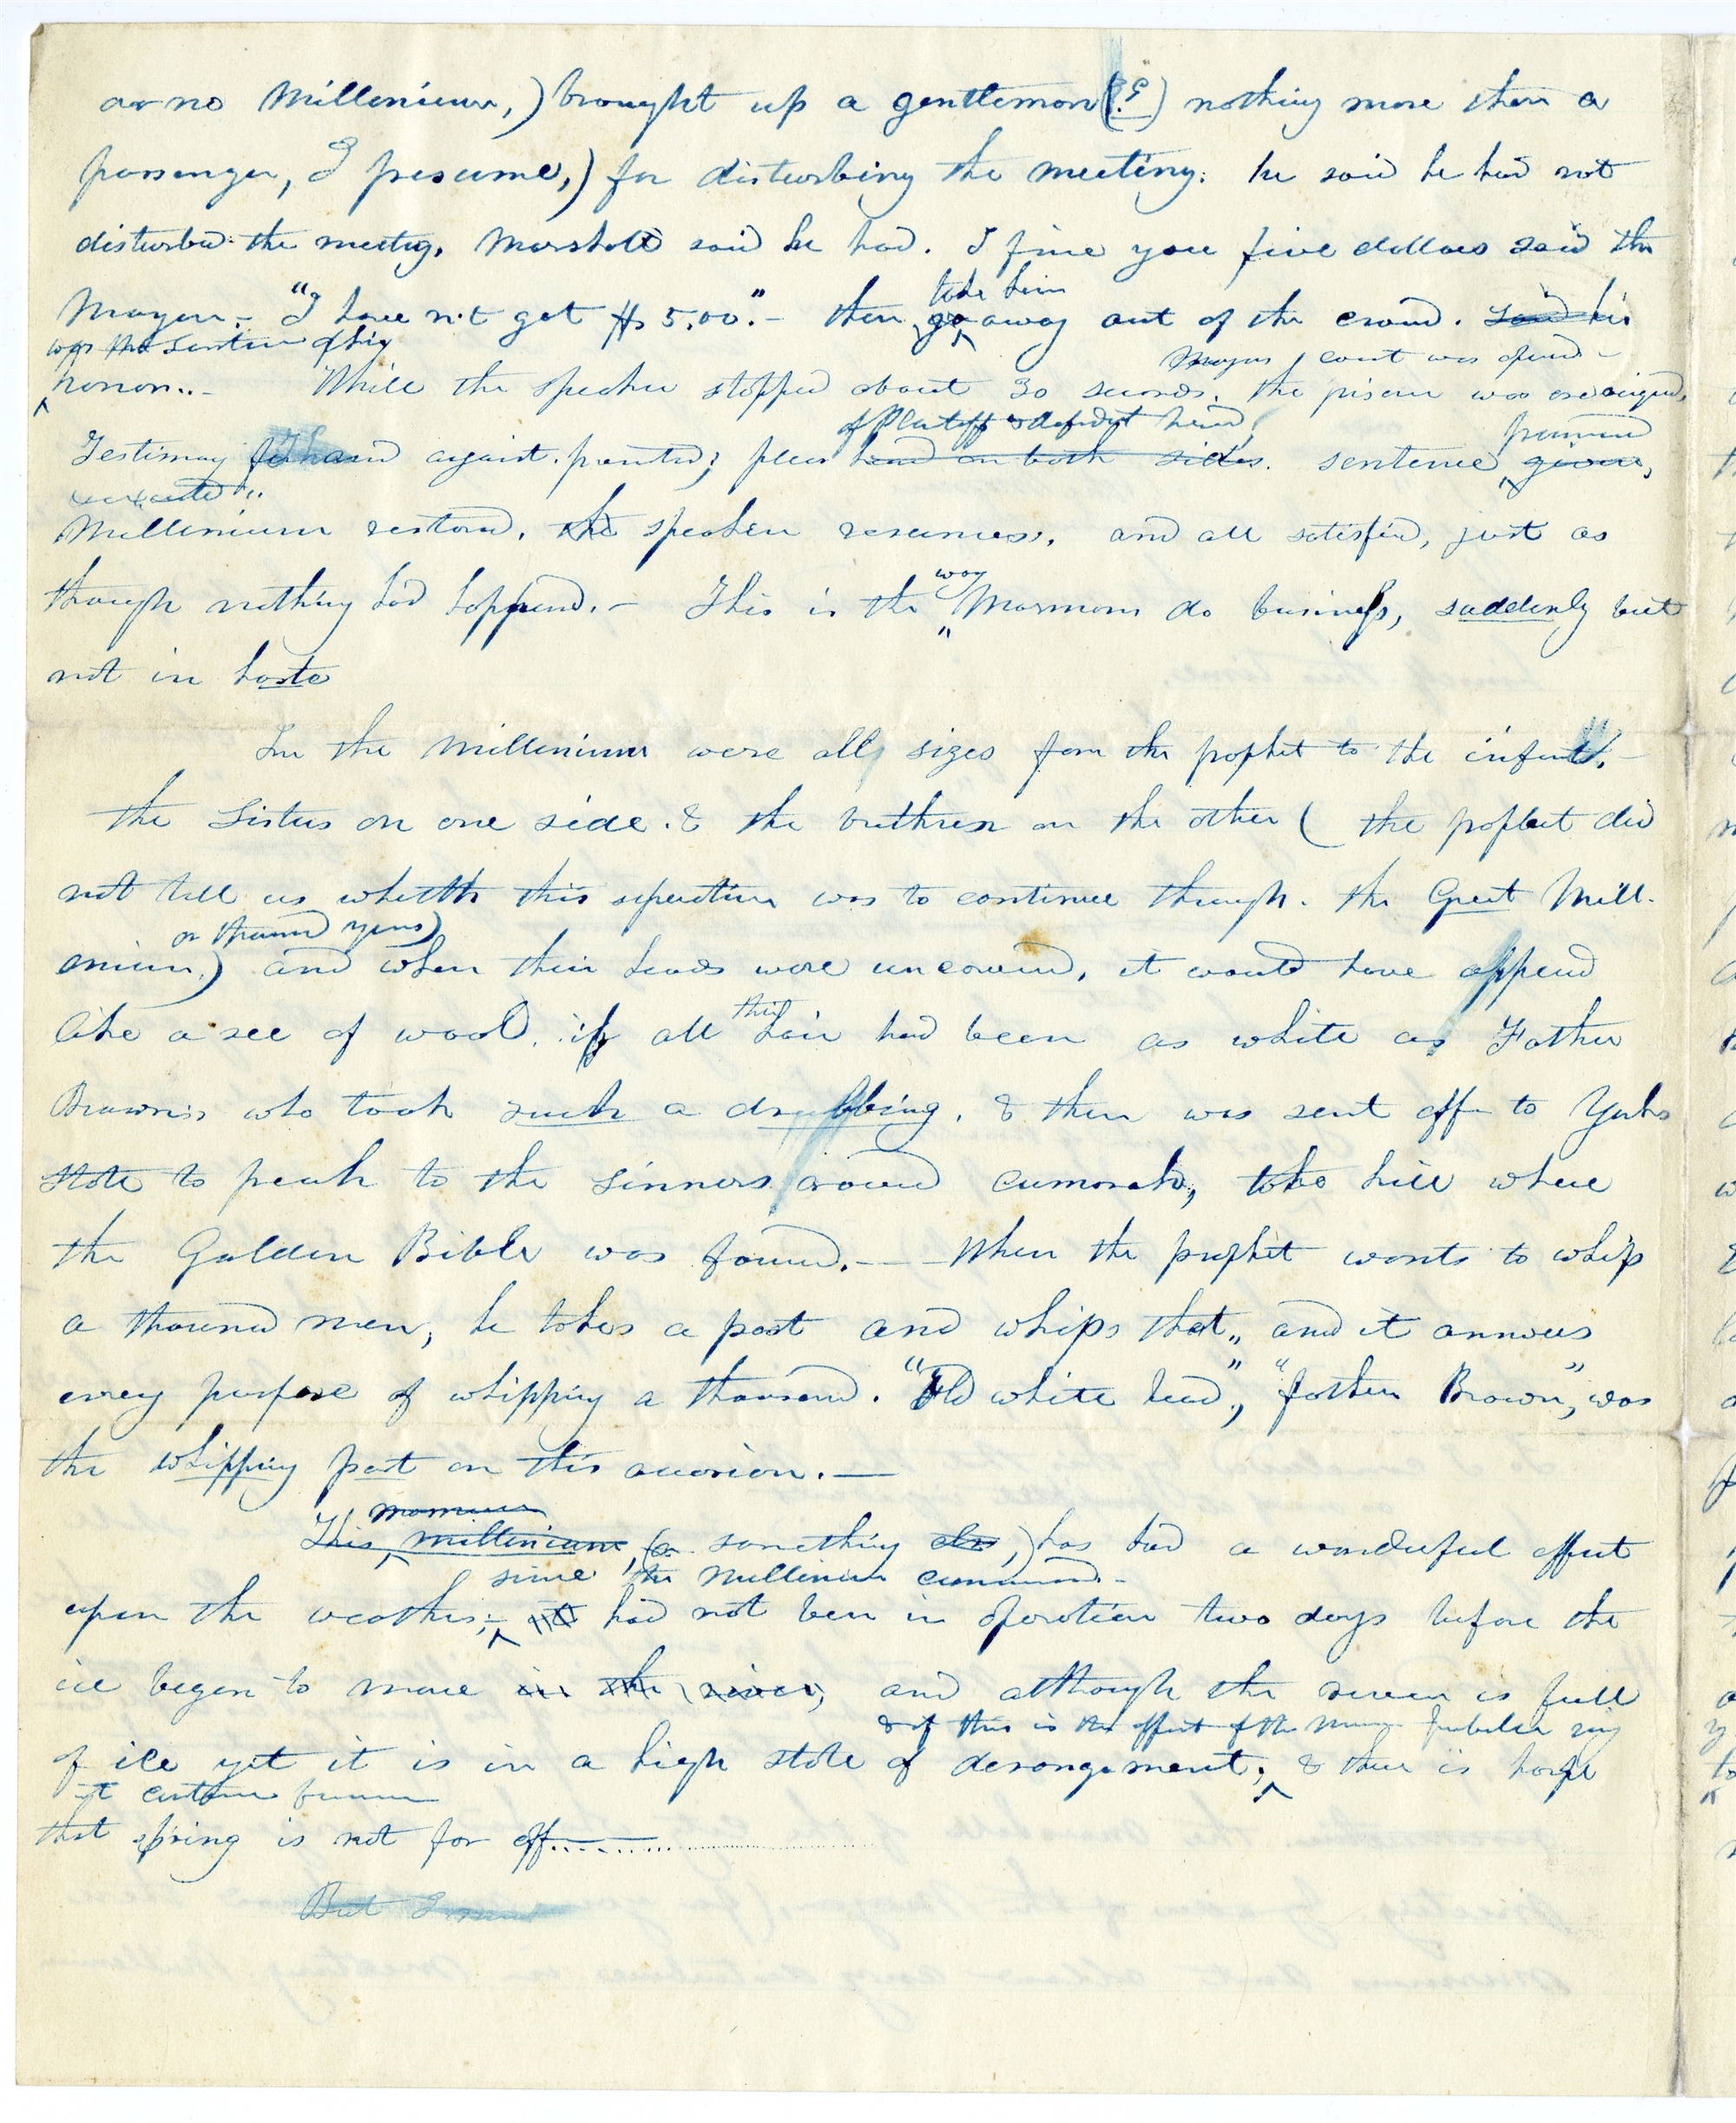 or no Millenium,) brought up a gentlemon (??) nothing more then a
passenger, I presume,) for disturbing the meeting. he said he had not
disturbed the meetig. Marshall said he had. I fine you five dollars said the
take him
Mayor.- "I have n't got $ 5.00."- then go away out of the crowd. said his
was the sentence of his
Mayors court was opend -
honor..- While the speaker stopped about 30 seconds. the prisoner was arraigned,
of Plantiff & defendnt heard,
pronounced
Testimony for and against. presented; pleas heard on both sides. sentence given,
executed..
Millenium restored. the speaker resumes. and all satisfied, just as
way
though nothing had happend.- This is the Mormons do business, suddenly but
not in haste
In the Millenium were all sizes from the prophet to the infant.-
the Sisters on one side. & the brethren on the other ( the prophet did
not tell us whether this seperation was to continue through. the Great Mill-
or thousand years)
enium.) and when their heads were uncovered, it would have appeared
their
like a see of wool. if all hair had been as white as Father
Brown's who took such a drubbing. & then was sent off to York
State to preach to the sinners around cumorah, the hill where
the Golden Bible was found.-- When the prophet wants to whip
a thousand men, he takes a post and whips that,, and it answers
every purpose of whipping a thousand. "Old white head", "father Brown", was
the whipping post on this occasion.-
mormon
This, millenium, (or something else,) has had a wonderful effect
since the Millenium commenced-
upon the weather;- it had not been in operation two days before the
ice began to move in the river, and although the river is full
& if this is the effect of the Jubilee
of ice yet it is in a high state of derangement; & there is hope
it continue
that spring is not far off........
But I